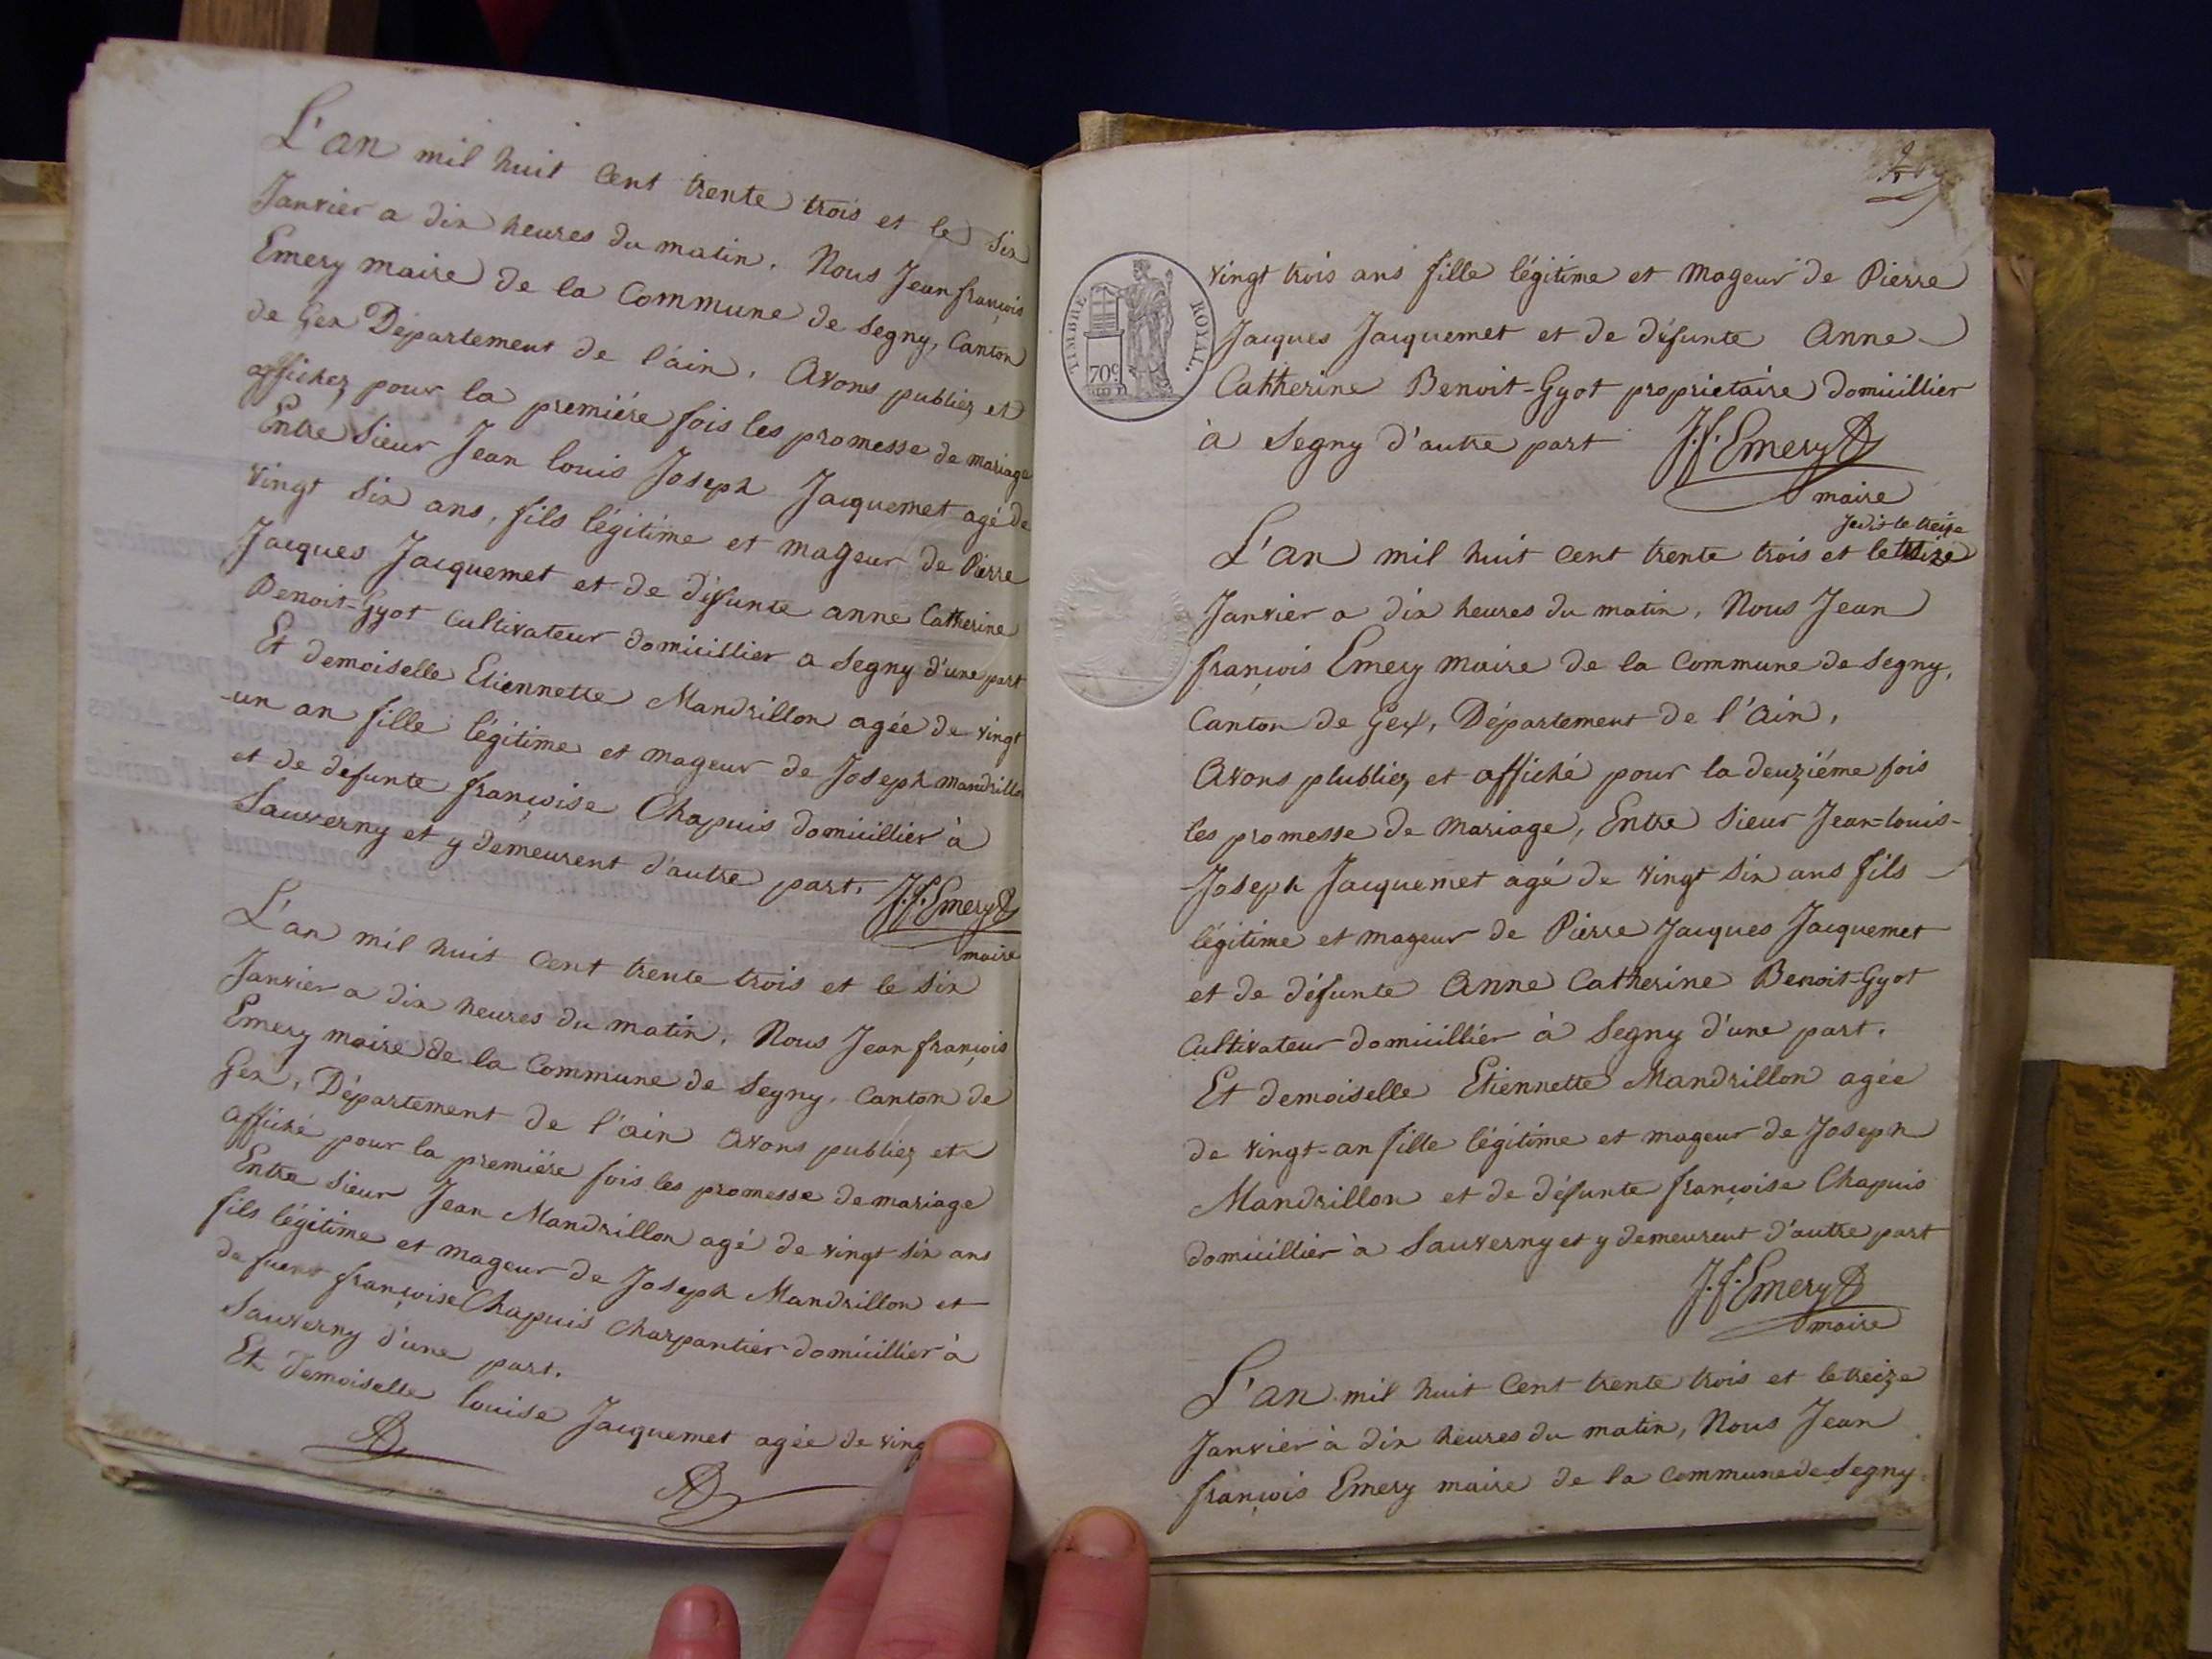 L'an mil huit cent trente trois et le six
Janvier a dix heures du matin. Nous Jean françois
Emery maire de la Commune de Segny, Canton
de Gex Département de l'ain. Avons publiez et
affichez pour la premiére fois les promesse de mariage
Entre Sieur Jean louis Joseph Jacquemet agé de
vingt six ans, fils légitime et mageur de Pierre
Jacques Jacquemet et de défunte anne Catherine
Benoit-Gyot Cultivateur domicillier a Segny d'une part
Et demoiselle Etiennette Mandrillon agée de vingt
-un an fille légitime et mageur de Joseph mandrillon
et de défunte françoise Chapuis domicillier à
Sauverny et y demeurent d'autre part. J.f. Emery
maire
L'an mil huit Cent trente trois et le six
Janvier a dix heures du matin. Nous Jean françois
Emery maire de la Commune de Segny. Canton de
Gex, Département de l'ain Avons publiez et
affiché pour la premiére fois les promesse de mariage
Entre Sieur Jean Mandrillon agé de vingt six ans
fils légitime et mageur de Joseph Mandrillon et
de françoise Chapuis Charpantier domicillier à
Sauverny d'une part.
Et demoiselle louise Jacquemet agée de
TIMBRE ROYAL.
70c
vingt trois ans fille légitime et mageur de Pierre
Jacques Jacquemet et de défunte Anne
Catherine Benoit-Gyot proprietaire domicillier
à Segny d'autre part J.f. Emery
maire
Jedis le treize
L'an mil huit cent trente trois et le treize
Janvier a dix heures du matin, Nous Jean
françois Emery maire de la Commune de Segny,
Canton de Gex, Département de l'Ain,
Avons plubliez et affiché pour la deuziéme fois
les promesse de mariage, Entre Sieur Jean-louis-
Joseph Jacquemet agé de vingt six ans fils
légitime et mageur de Pierre Jacques Jacquemet
et de défunte Anne Catherine Benoit-Gyot
Cultivateur domicillier à Segny d'une part.
Et demoiselle Etiennette Mandrillon agée
de vingt-an fille légitime et mageur de Joseph
Mandrillon et de défunte françoise Chapuis
domicillier à Sauverny et y demeurent d'autre part
J.f. Emery
maire
L'an mil huit Cent trente trois et le treize
Janvier à dix heures du matin, Nous Jean
françois Emery maire de la Commune de Segny